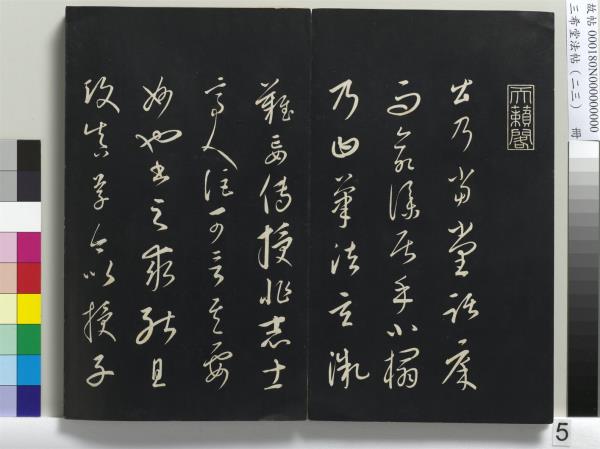 故帖 000180N000000000
三希堂法帖（二三） 冊
天籟閣
出乃當堂踞床
而命僕居乎小榻
乃曰筆法玄微
難妄傳授非志士
高人詎可言其要
妙也書之求能且
攻真草今以授子
5